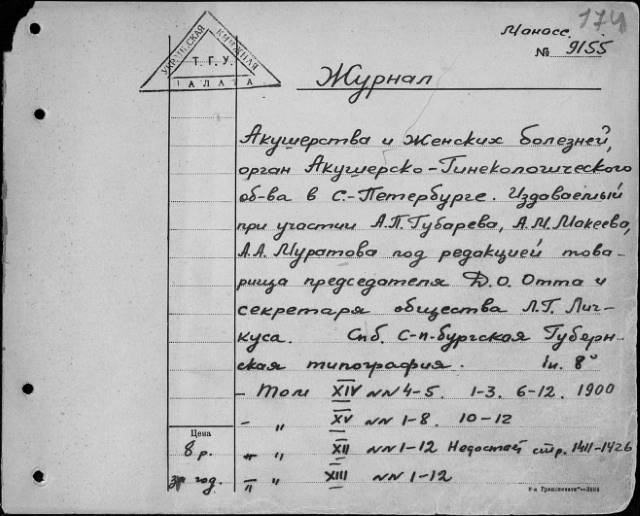 174
Маносс.
№ 9155
УКРАЇНСКАЯ КНИЖНАЯ
Т. Г. У.
ПАЛАТА
Журнал
Акушерства и Женских болезней,
орган Акушерско-Гинекологического
об-ва в С.-Петербурге. Издаваемый
при участии А.П. Губарева, А.М. Макеева,
А.А. Муратова под редакцией това-
рища председателя Д.О. Отта и
секретаря общества Л.Г. Лич-
куса. Спб. С-п-бургская Губерн-
ская типография. In. 8°
- Том XIV №№ 4-5. 1-3. 6-12. 1900
- " XV №№ 1-8. 10-12
Цена
8 р. - " XII №№ 1-12 Недостает стр. 1411-1426
за год. - " XIII №№ 1-12